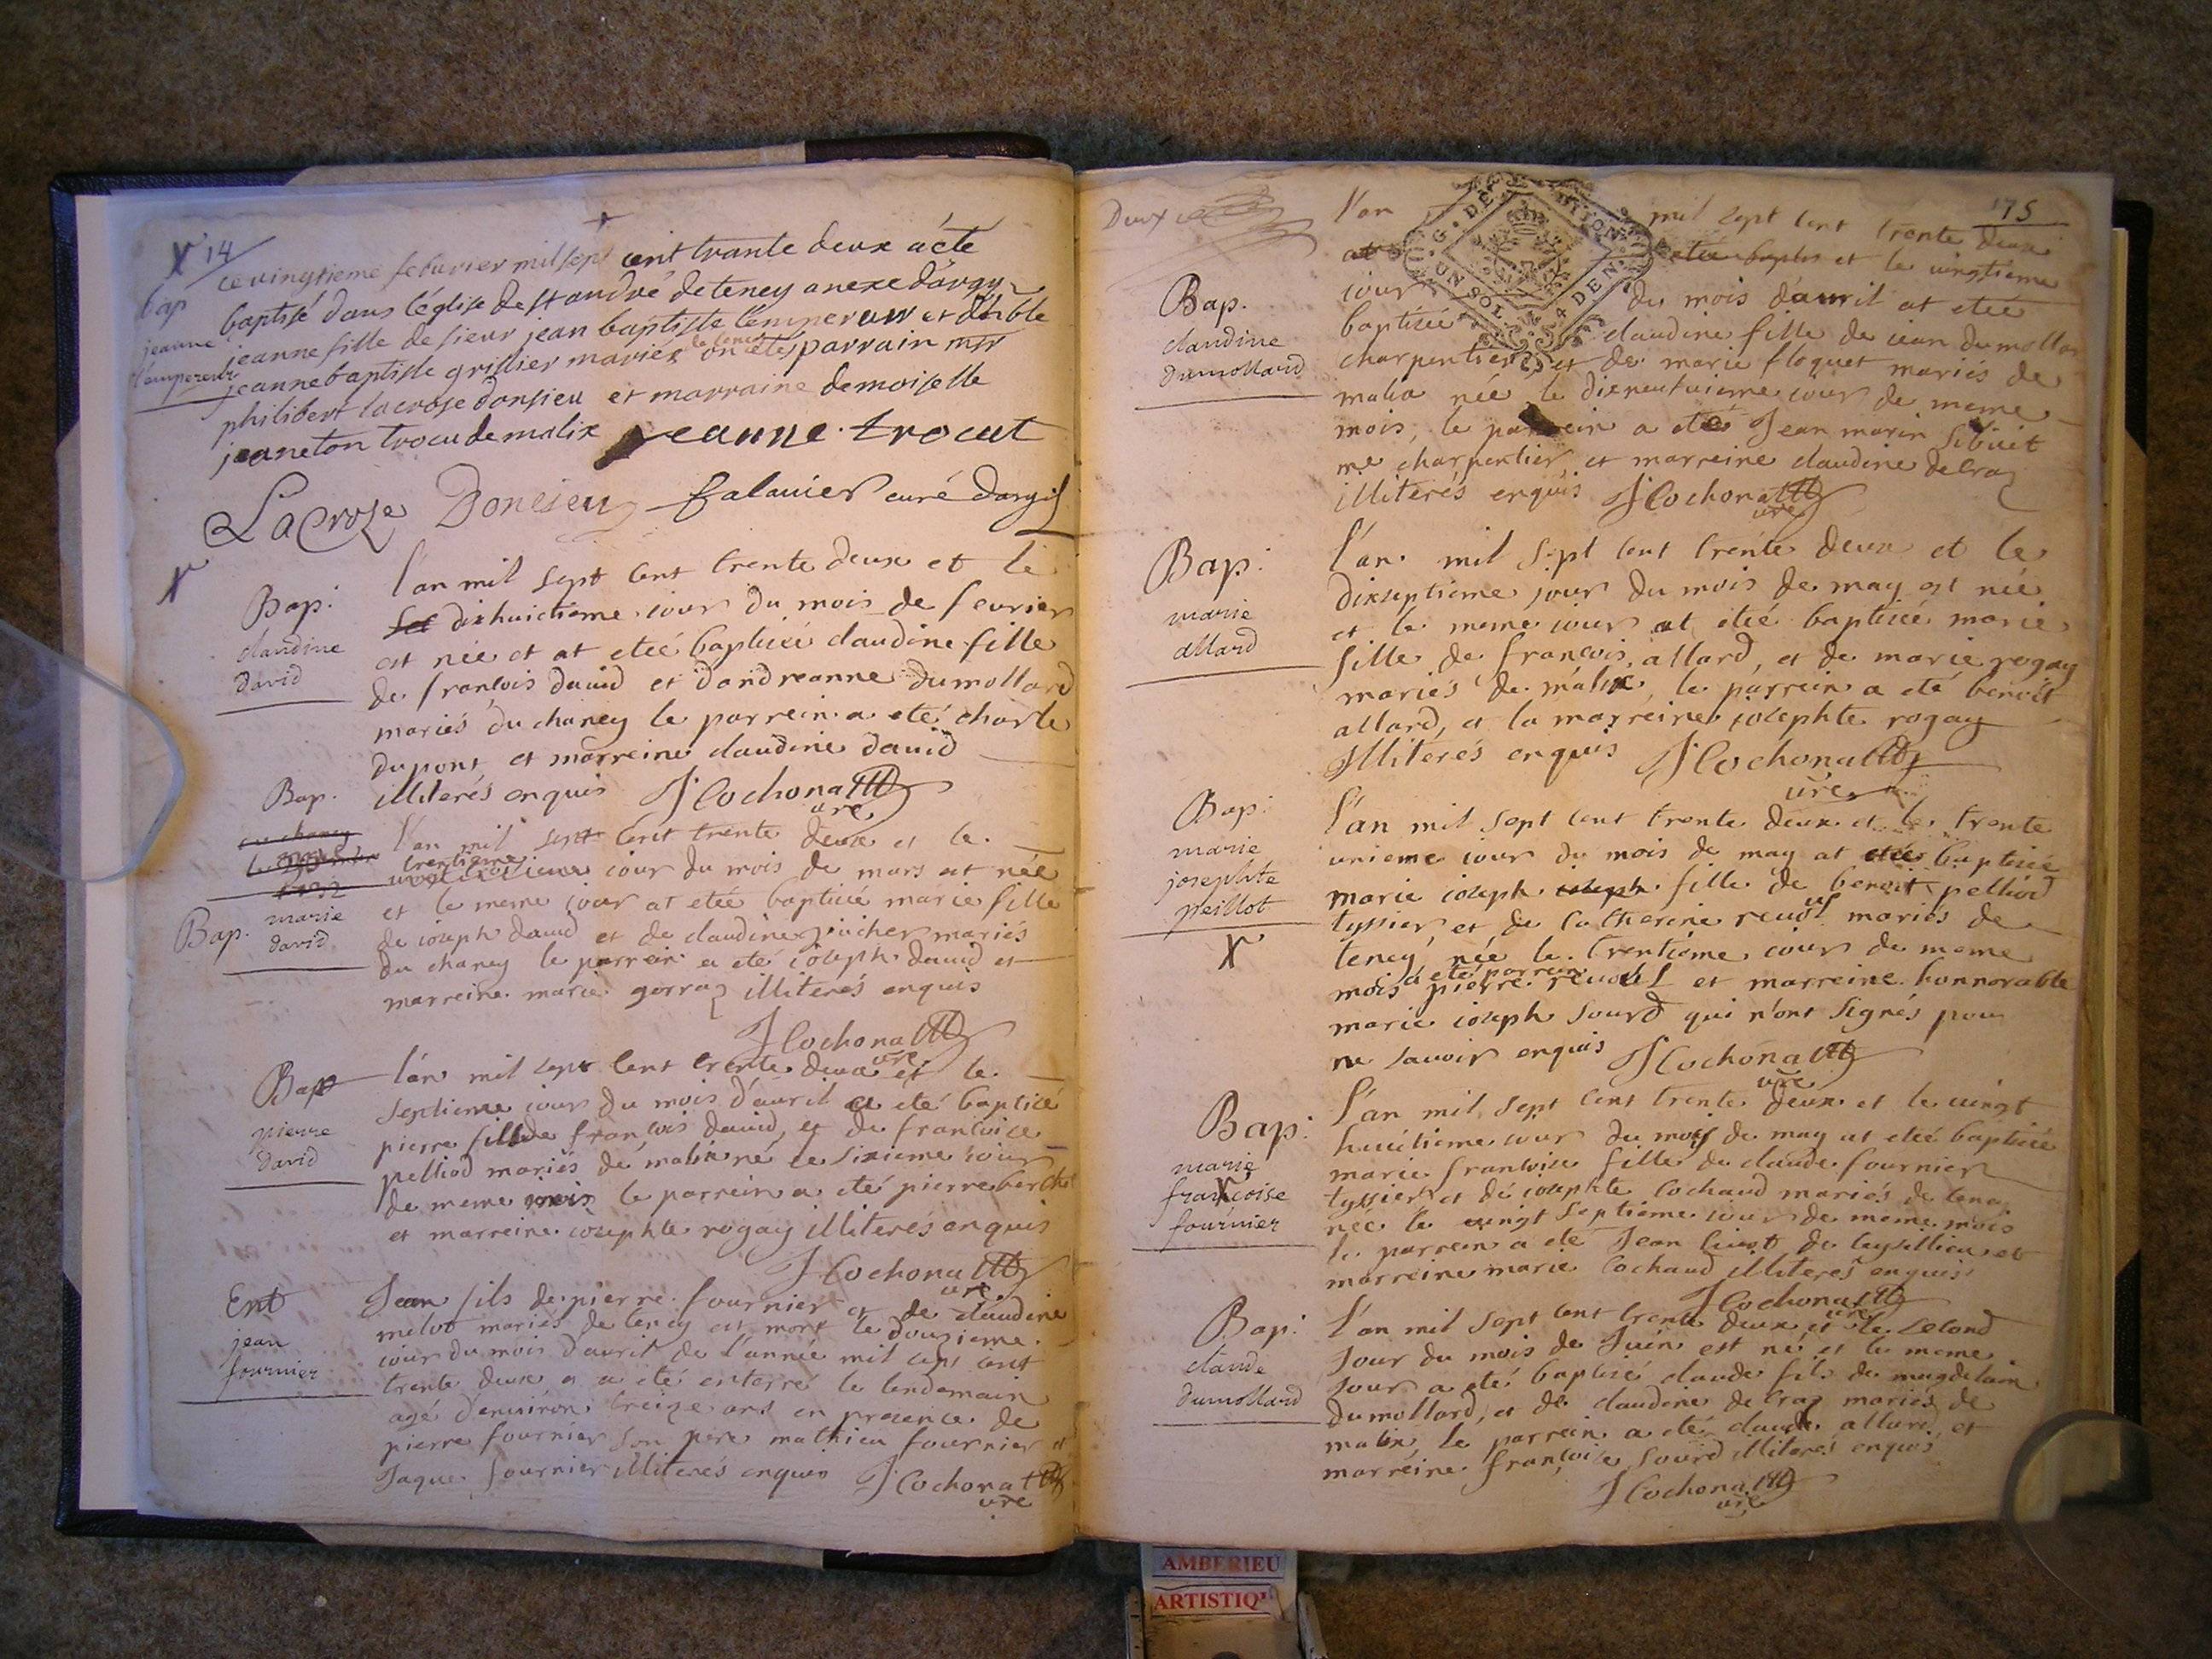 14
bap
jeanne
lampereur
ce vingtieme feburier mil sept cent trante deux a éte
baptisé dans léglise de st andré de teney anexe dárgy
jeanne fille de sieur jean baptiste lempereur et
jeanne baptiste grillier mariés on étes parrain mr
philibert lacroze donsieu et marraine demoiselle
jeaneton trocu de malix jeanne trocut
Lacroze Doncieu falauier curé dargis
Bap:
claudine
david
l'an mil sept cent trente deux et le
dixhuictieme iour du mois de feurier
est née et at eteé baptiseé claudine fille
de francois dauid et dandreanne dumollard
mariés du chaney le parrein a eté charle
dupont et marreine claudine dauid
illiterés enquis J Cochonat
Bap.
l'an mil sept cent trente deux et le
trentieme iour du mois de mars at neé
Bap. marie
david
et le meme iour at eteé baptiseé marie fille
de ioseph dauid et de claudine mariés
du chaney le parrein a eté ioseph dauid et
marreine marie gorraz illiterés enquis
J Cochonat
Bap
pierre
david
l'an mil sept cent trente deux et le
septieme iour du mois d'auril a eté baptisé
pierre fils de francois dauid, et de francoise
pelliod mariés de malix né le sixieme iour
de meme mois le parrein a eté pierre
et marreine iosephte rogay illiterés enquis
J Cochonat
Ent
jean
fournier
Jean fils de pierre fournier et de claudine
melot mariés de teney est mort le douzieme
iour du mois d'auril de l'année mil sept cent
trente deux et a eté enterré le lendemain
agé d'environ treize ans en presence de
pierre fournier son pere mathieu fournier et
Jaque fournier illiterés enquis J Cochonat
175
Deux
G. DE DIJON
UN SOL 4 DEN.
l'an mil sept cent trente deux
et le vingtieme
Bap.
claudine
dumollard
iour du mois d'auril at eteé
baptiseé claudine fille de iean dumollar
charpentier, et de marie floquet mariés de
malix neé le dixneufuieme iour de meme
mois, le parrein a eté Jean marin Sibuit
me charpentier, et marreine claudine delraz
illiterés enquis J Cochonat
Bap:
marie
allard
l'an mil sept cent trente deux et le
dixseptieme jour du mois de may est neé
et le meme iour at eteé baptiseé marie
fille de francois allard, et de marie rogay
mariés de malix, le parrein a eté benoit
allard, et la marreine iosephte rogay
Illiterés enquis J Cochonat
Bap:
marie
josephte
peillot
l'an mil sept cent trente deux et le trente
unieme iour du mois de may at eteé baptiseé
marie ioseph fille de benoit pelliod
tyssier, et de catherine reuol mariés de
teney, neé le trentieme iour de meme
mois a eté parrein pierre reuol et marreine honnorable
marie ioseph sourd qui n'ont signés pour
ne sauoir enquis J Cochonat
Bap:
marie
francoise
fournier
l'an mil sept cent trente deux et le uingt
huictieme iour du mois de may at eteé baptiseé
marie francoise fille de claude fournier
tyssier et de iosephte Cochaud mariés de teney
neé le uingt septieme iour de meme mois
le parrein a eté Jean de et
marreine marie Cochaud illiterés enquis
J Cochonat
Bap:
claude
dumollard
l'an mil sept cent trente deux et le second
Jour du mois de Juin est né et le meme
Jour a eté baptisé claude fils de magdelain
dumollard, et de claudine delraz mariés de
malix, le parrein a eté claude allard, et
marreine francoise sourd illiterés enquis
J Cochonat
AMBERIEU
ARTISTIQ